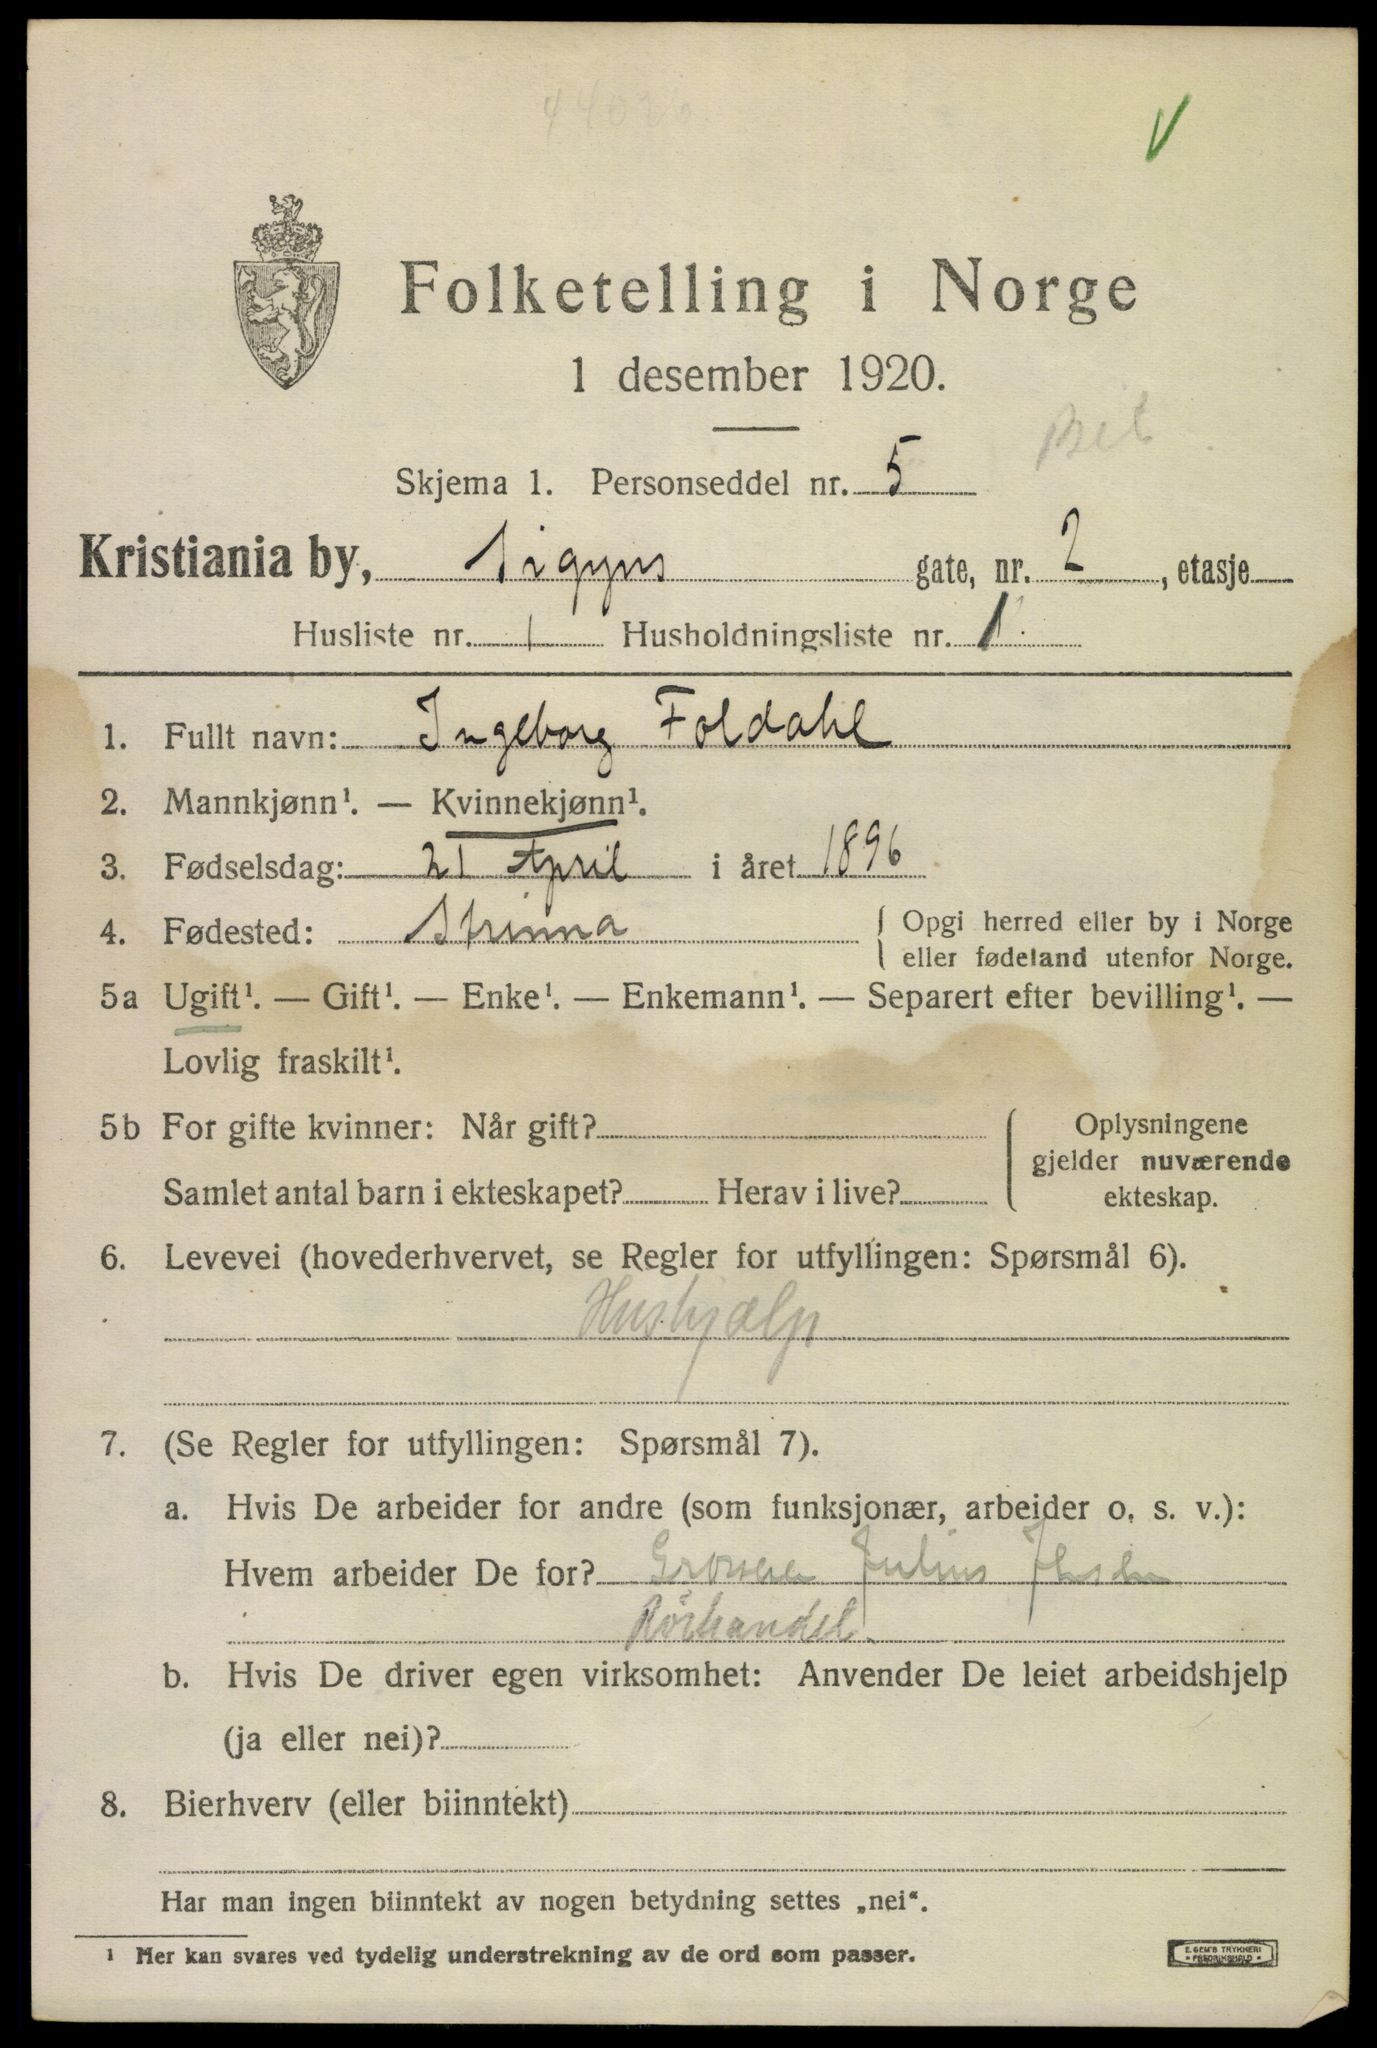 44026
V
Folketelling i Norge
1 desember 1920.
Skjema 1. Personseddel nr. 5
Kristiania by, Sigyns gate, nr. 2, etasje
Husliste nr. 1 Husholdningsliste nr. 1.
1. Fullt navn: Ingeborg Foldahl
2. Mannkjønn¹. — Kvinnekjønn¹.
3. Fødselsdag: 21 April i året 1896
4. Fødested: Strinna { Opgi herred eller by i Norge
eller fødeland utenfor Norge.
5a Ugift¹. — Gift¹. — Enke¹. — Enkemann¹. — Separert efter bevilling¹. —
Lovlig fraskilt¹.
5b For gifte kvinner: Når gift?
Samlet antal barn i ekteskapet? Herav i live?
Oplysningene
gjelder nuværende
ekteskap.
6. Levevei (hovederhvervet, se Regler for utfyllingen: Spørsmål 6).
Hushjælp
7. (Se Regler for utfyllingen: Spørsmål 7).
a. Hvis De arbeider for andre (som funksjonær, arbeider o. s. v.):
Hvem arbeider De for? Julius
Rörhandel.
b. Hvis De driver egen virksomhet: Anvender De leiet arbeidshjelp
(ja eller nei)?
8. Bierhverv (eller biinntekt)
Har man ingen biinntekt av nogen betydning settes „nei“.
¹ Her kan svares ved tydelig understrekning av de ord som passer.
E. SEM'S TRYKKERI
FREDRIKSHALD